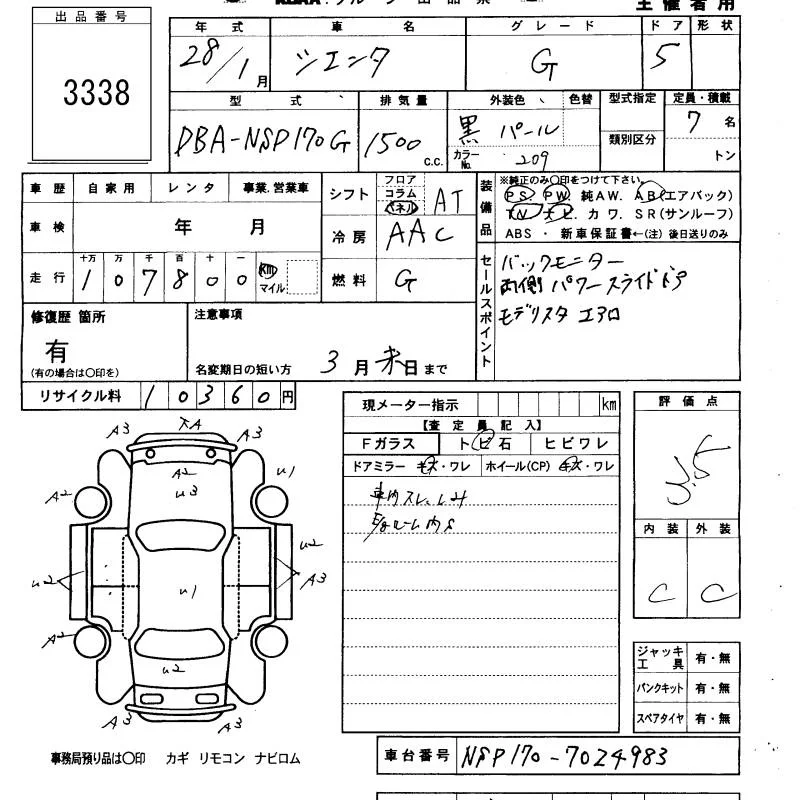 主催者用
出品番号
3338
年式 車名 グレード ドア 形状
28/1月 シエンタ G 5
型式 排気量 外装色 色替 型式指定 定員・積載
DBA-NSP170G 1500 c.c. 黒 パール 7名
カラーNo. 209 類別区分 トン
車歴 自家用 レンタ 事業.営業車
車検 年 月
走行 十万 万 千 百 十 一
1 0 7 8 0 0 km マイル
シフト フロア コラム パネル AT
冷房 AAC
燃料 G
装備品
※純正のみ○印をつけて下さい。
PS. PW. 純AW. AB(エアバック)
TV. ナビ. カワ. SR(サンルーフ)
ABS ・ 新車保証書←(注) 後日送りのみ
セールスポイント
バックモニター
両側 パワースライドドア
モデリスタ エアロ
修復歴 箇所
有
(有の場合は○印を)
注意事項
名変期日の短い方 3月末日まで
リサイクル料 10360円
現メーター指示 km
【査定員記入】
Fガラス トビ石 ヒビワレ
ドアミラー キズ・ワレ ホイール(CP) キズ・ワレ
車内スレ、シミ
評価点
3.5
内装 外装
C C
A3 A3
A2
U3
A2 U1
U2
U2 U1 A3
A2
U2
A3 A3
ジャッキ工具 有・無
パンクキット 有・無
スペアタイヤ 有・無
事務局預り品は○印 カギ リモコン ナビロム
車台番号 NSP170-7024983